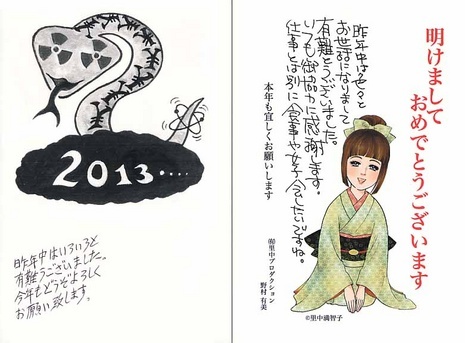 2013‥‥
昨年中はいろいろと
有難うございました。
今年もどうぞよろしく
お願い致します。
明けまして
おめでとうございます
昨年中は色々と
お世話になりまして
有難とうございました。
いつも御協力に感謝します。
仕事とは別に食事や女子会したいですね。
本年も宜しくお願いします
㈲里中プロダクション
野村有美
©里中満智子